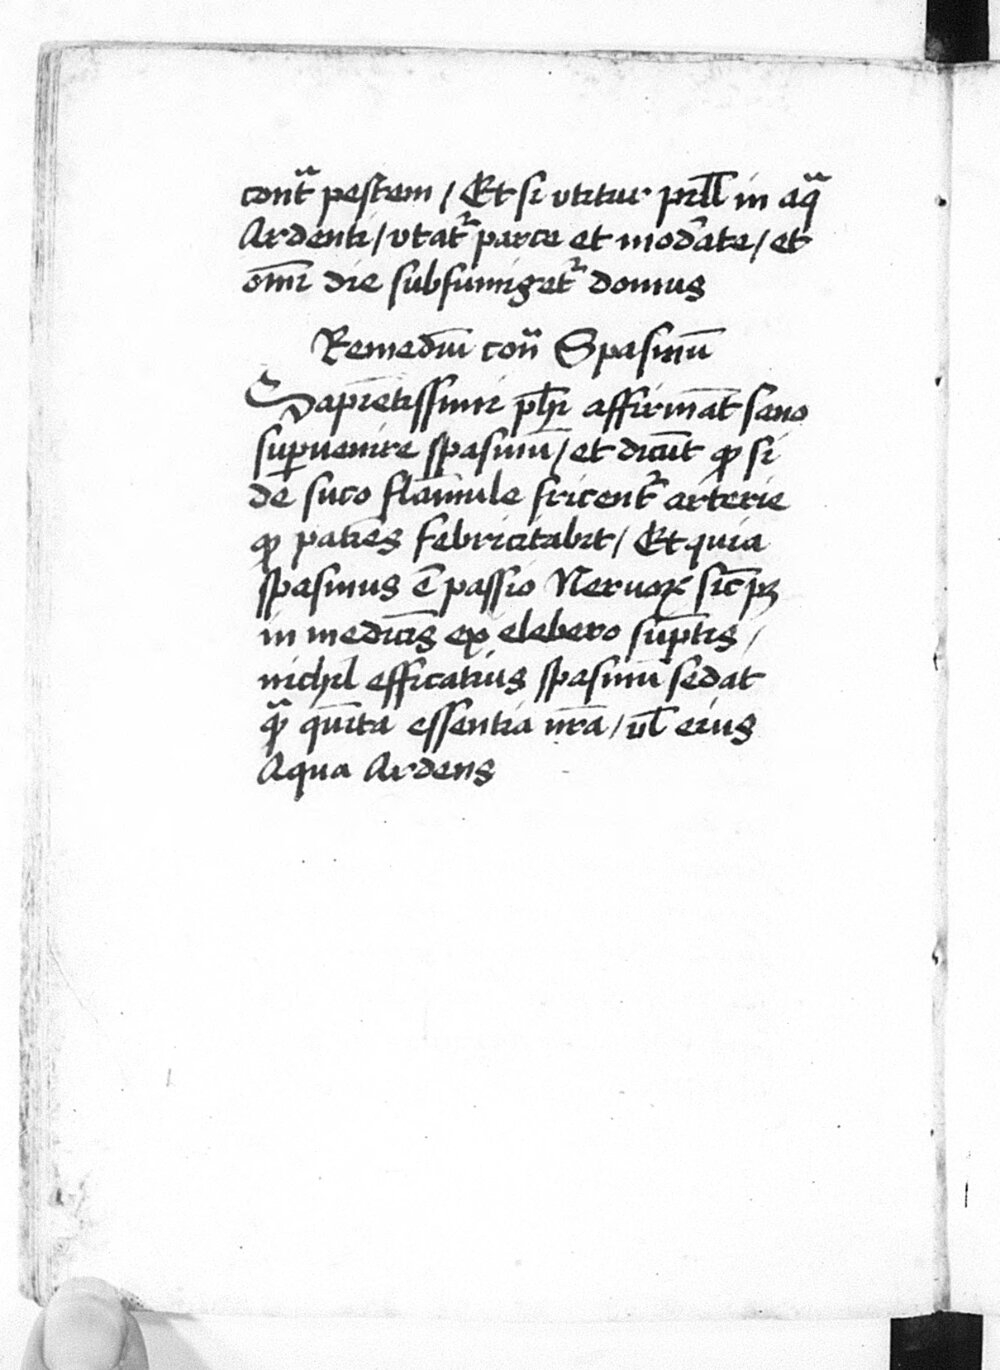 contᷓ pestem / Et si vtitur pill̄ in aqᷓ
Ardenti / vtatᷣ parce et modᷣate / et
om̄i die subfumigetᷣ domus
Remediū contᷓ Spasmū
Sapiētissimi ph̄i affirmāt seno
suꝑuenire spasmū / et dicūt ꝙ si
de suco flām̄ule fricentᷣ arterie
ꝙ patiēs febricitabit / Et quia
spasmus ē passio Neruoꝝ sic̄ pꝫ
in medicīs ex elebero sūptis /
nichil efficatius spasmū sedat
qᷓ qn̄ta essentia nr̄a / vl̄ eius
Aqua Ardens